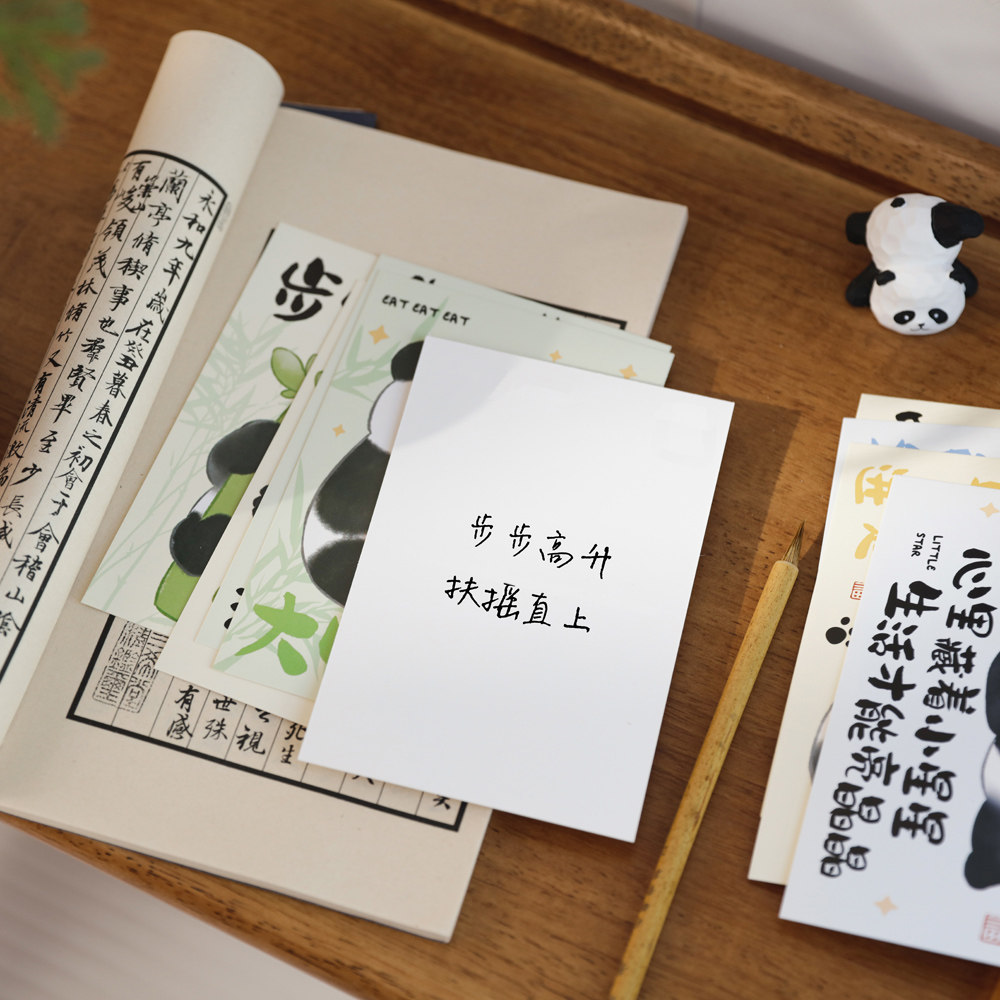 永和九年歲在癸丑暮春之初會于會稽山陰
蘭亭脩稧事也羣賢畢至少長咸
有崇山
峻領茂林脩竹又有清流
步
EAT EAT EAT
大
步步高升
扶摇直上
有感
世殊
視
死生
LITTLE
STAR
心里藏着小星星
生活才能亮晶晶